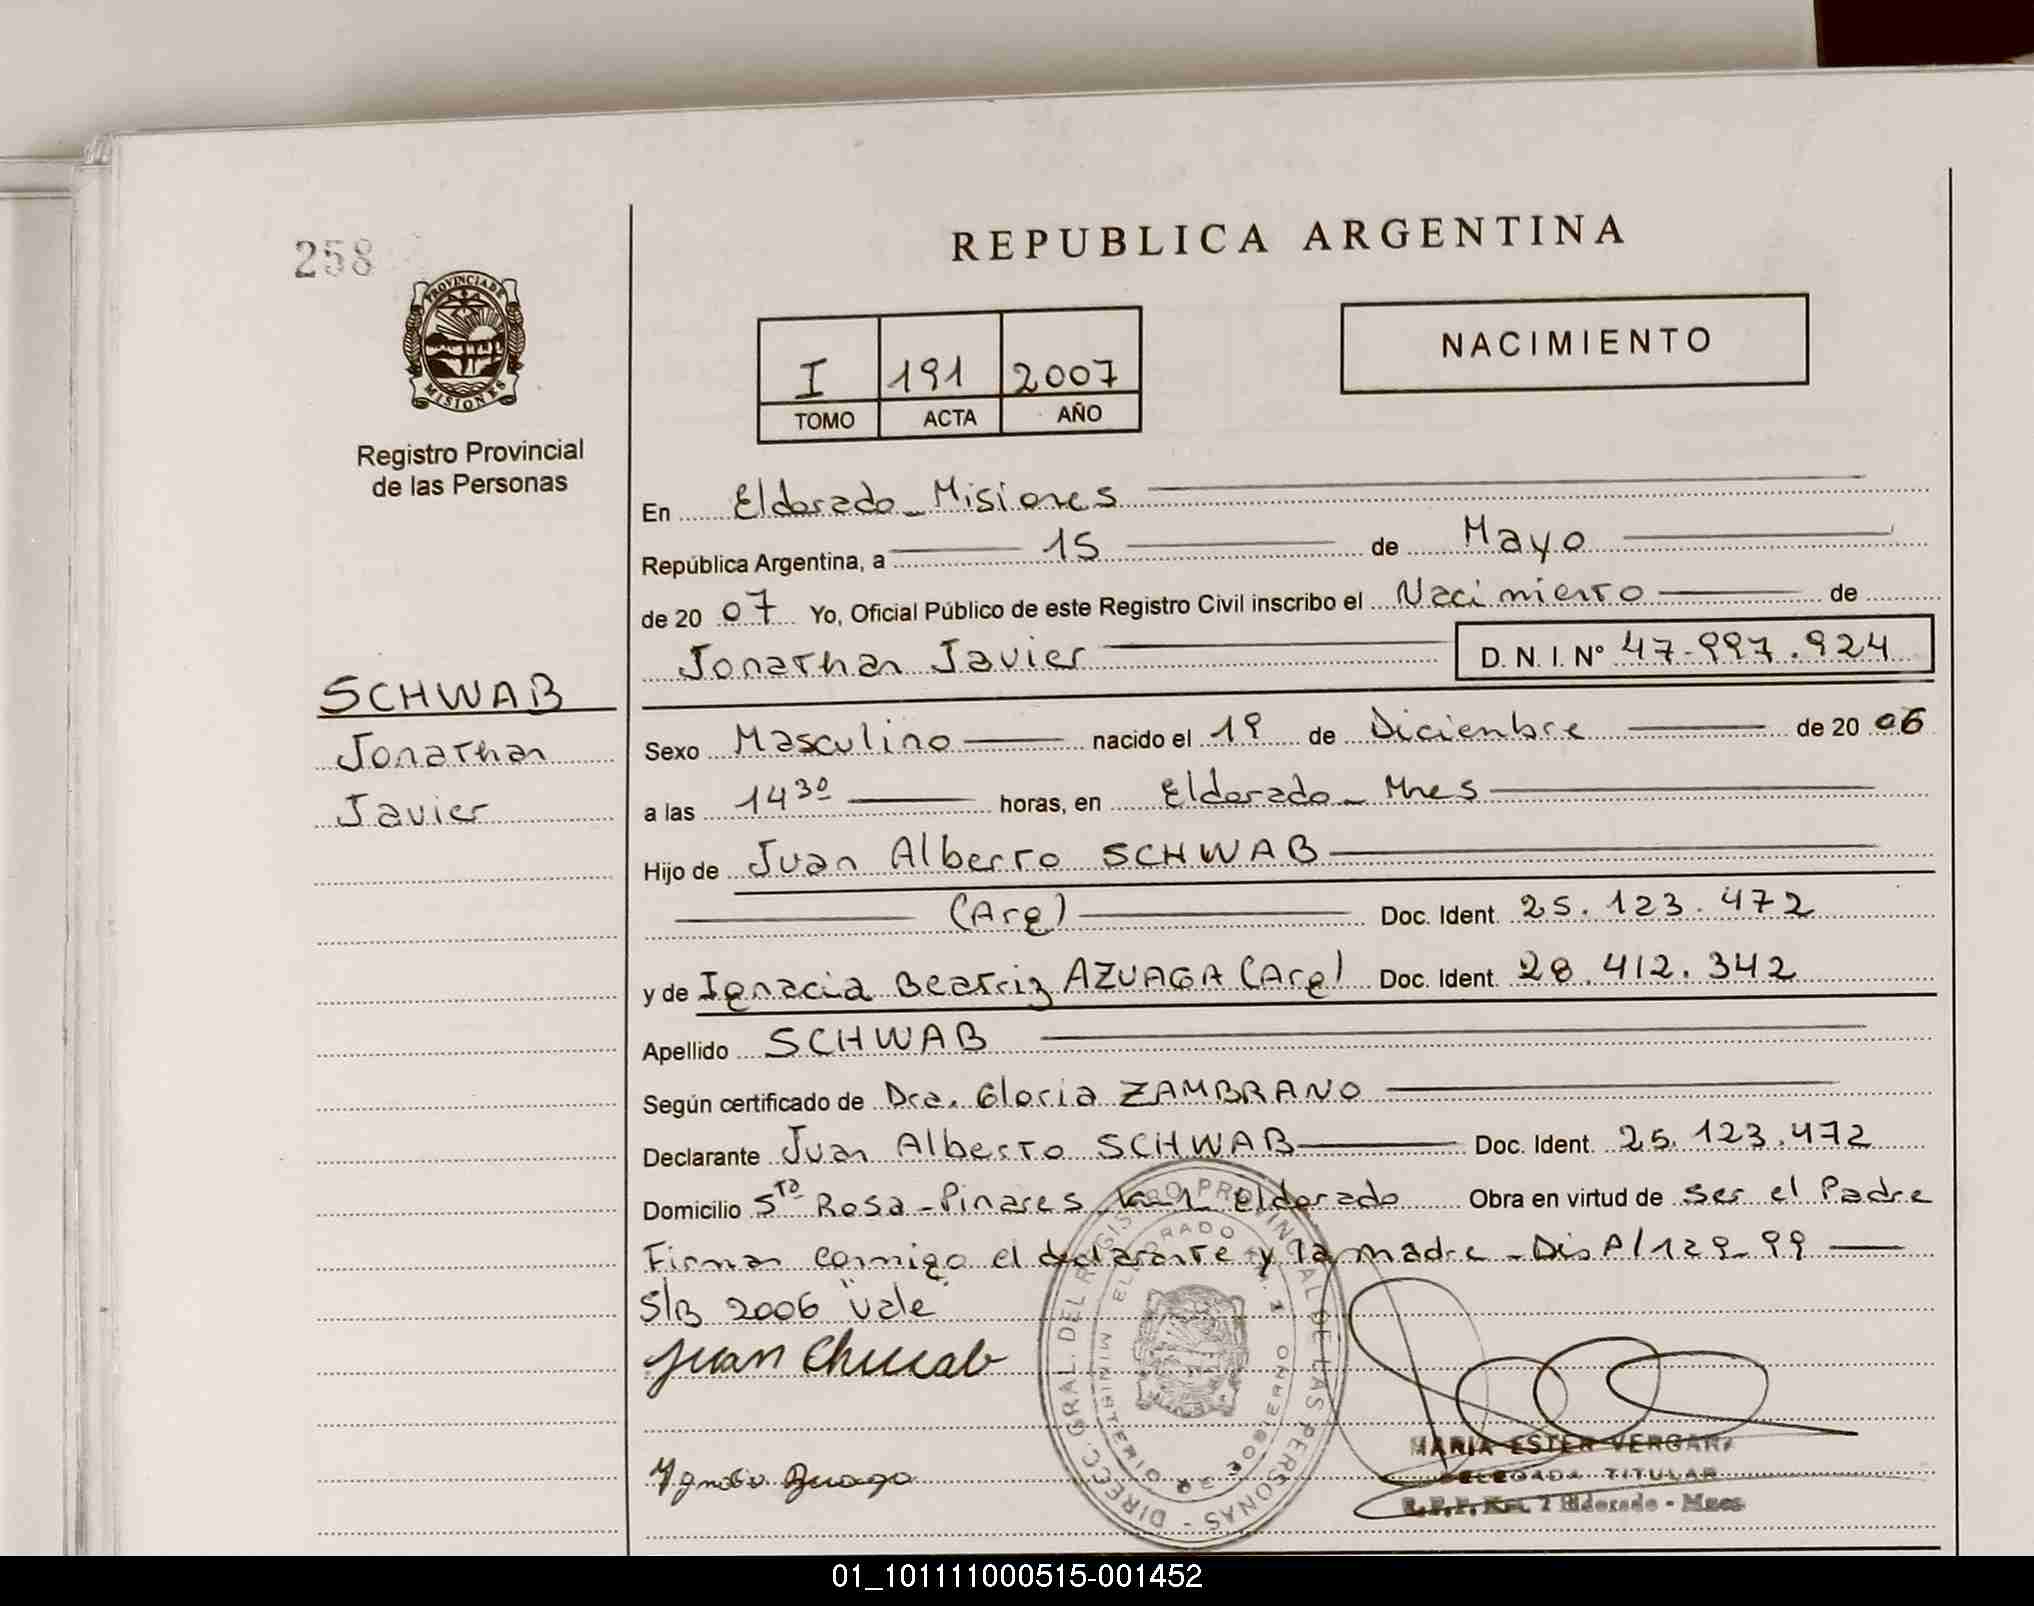 258
PROVINCIA DE
MISIONES
Registro Provincial
de las Personas
SCHWAB
Jonathan
Javier
REPUBLICA ARGENTINA
I 191 2007
TOMO ACTA AÑO
NACIMIENTO
En Eldorado - Misiones
República Argentina, a 15 de Mayo
de 20 07 Yo, Oficial Público de este Registro Civil inscribo el Nacimiento de
Jonathan Javier D. N. I. Nº 47-997.924
Sexo Masculino nacido el 19 de Diciembre de 20 06
a las 14 30 horas, en Eldorado - Mnes
Hijo de Juan Alberto SCHWAB
(Arg) Doc. Ident. 25.123.472
y de Ignacia Beatriz AZUAGA (Arg) Doc. Ident. 28.412.342
Apellido SCHWAB
Según certificado de Dra. Gloria ZAMBRANO
Declarante Juan Alberto SCHWAB Doc. Ident. 25.123.472
Domicilio Sta Rosa - Pinares Km 1 Eldorado Obra en virtud de ser el Padre
Firman conmigo el declarante y la madre - Dis A/129-99
S/B 2006 "Vale"
Juan
DIREC. GRAL. DEL REGISTRO PROVINCIAL DE LAS PERSONAS -
MINISTERIO DE GOBIERNO
ELDORADO
MARIA ESTER VERGARA
DELEGADA TITULAR
Eldorado - Mnes
01_101111000515-001452